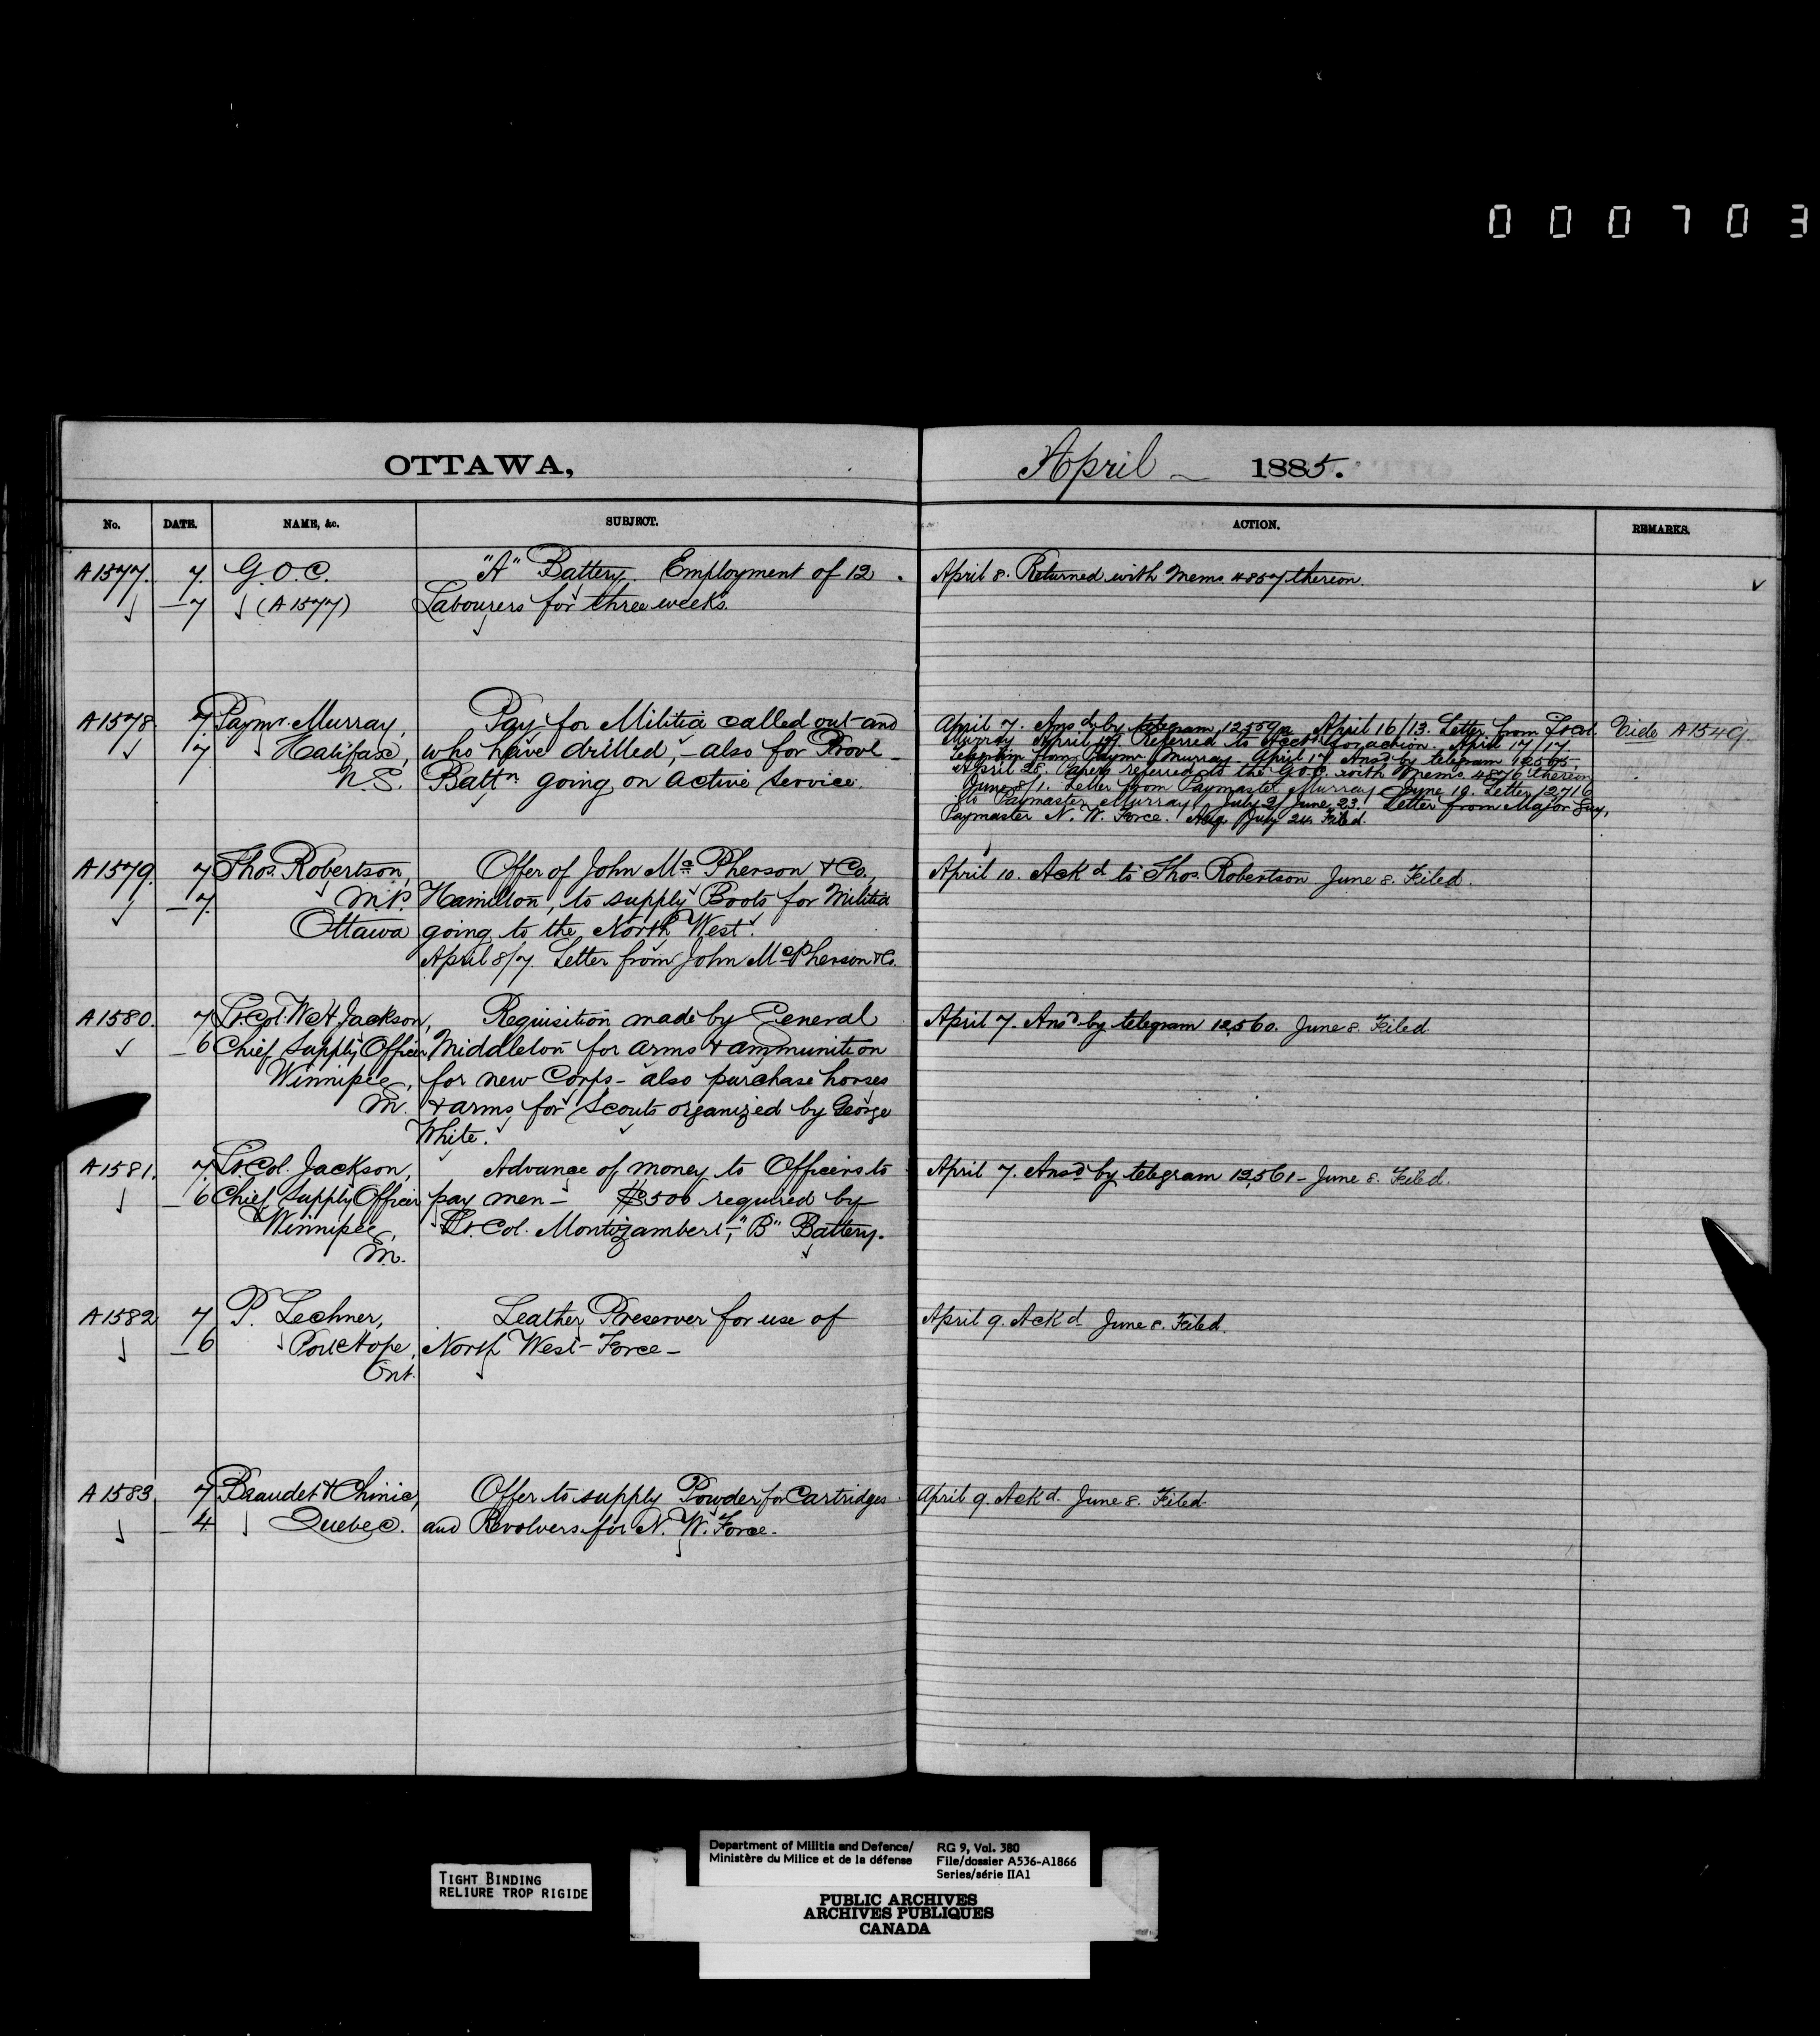 000703
OTTAWA,
April 1885.
No. DATE. NAME, &c. SUBJECT. ACTION. REMARKS.
A1577. 7. G.O.C. "A" Battery. Employment of 12 April 8. Returned with Memo 4857 thereon.
7 (A1577) Labourers for three weeks.
A1578 7 Paymr. Murray, Pay for Militia called out and
7 Halifax, who have drilled, - also for Provl
N.S. Battn going on active service.
April 7. Ansd by telegram 12559½ April 16/13. Letter from Lt Col. Vide A1549.
Murray April 17. Referred to Acctt for action. April 17/17
from Paymr Murray April 17 Ansd by telegram 12565.
April 28. Papers referred to the G.O.C. with memo 4876 thereon
June 8/1. Letter from Paymaster Murray June 19. Letter 12716
to Paymaster Murray July 2/June 23. Letter from Major Guy,
Paymaster N. W. Force. July 24 Filed.
A1579. 7 Thos. Robertson, Offer of John McPherson & Co., April 10. Ackd to Thos. Robertson June 8. Filed.
7. M.P. Hamilton, to supply Boots for Militia
Ottawa going to the North West.
April 8/7. Letter from John McPherson & Co.
A1580. 7 Lt. Col. W.H. Jackson, Requisition made by General April 7. Ansd by telegram 12,560. June 8. Filed
6 Chief Supply Officer Middleton for arms & ammunition
Winnipeg, for new Corps - also purchase horses
M. & arms for Scouts organized by George
White.
A1581. 7 Lt Col. Jackson, Advance of money to Officers to April 7. Ansd by telegram 12,561 - June 8. Filed.
6 Chief Supply Officer pay men - $500 required by
Winnipeg, Lt. Col. Montizambert, - "B" Battery.
M.
A1582 7 P. Lechner, Leather Preserver for use of April 9. Ackd June 8. Filed.
6 Port Hope, North West Force -
Ont.
A1583 7 Beaudet & Chinic, Offer to supply Powder for Cartridges April 9. Ackd. June 8. Filed
4 Quebec. and Revolvers for N. W. Force.
TIGHT BINDING
RELIURE TROP RIGIDE
Department of Militia and Defence/
Ministère du Milice et de la défense
RG 9, Vol. 380
File/dossier A536-A1866
Series/série IIA1
PUBLIC ARCHIVES
ARCHIVES PUBLIQUES
CANADA